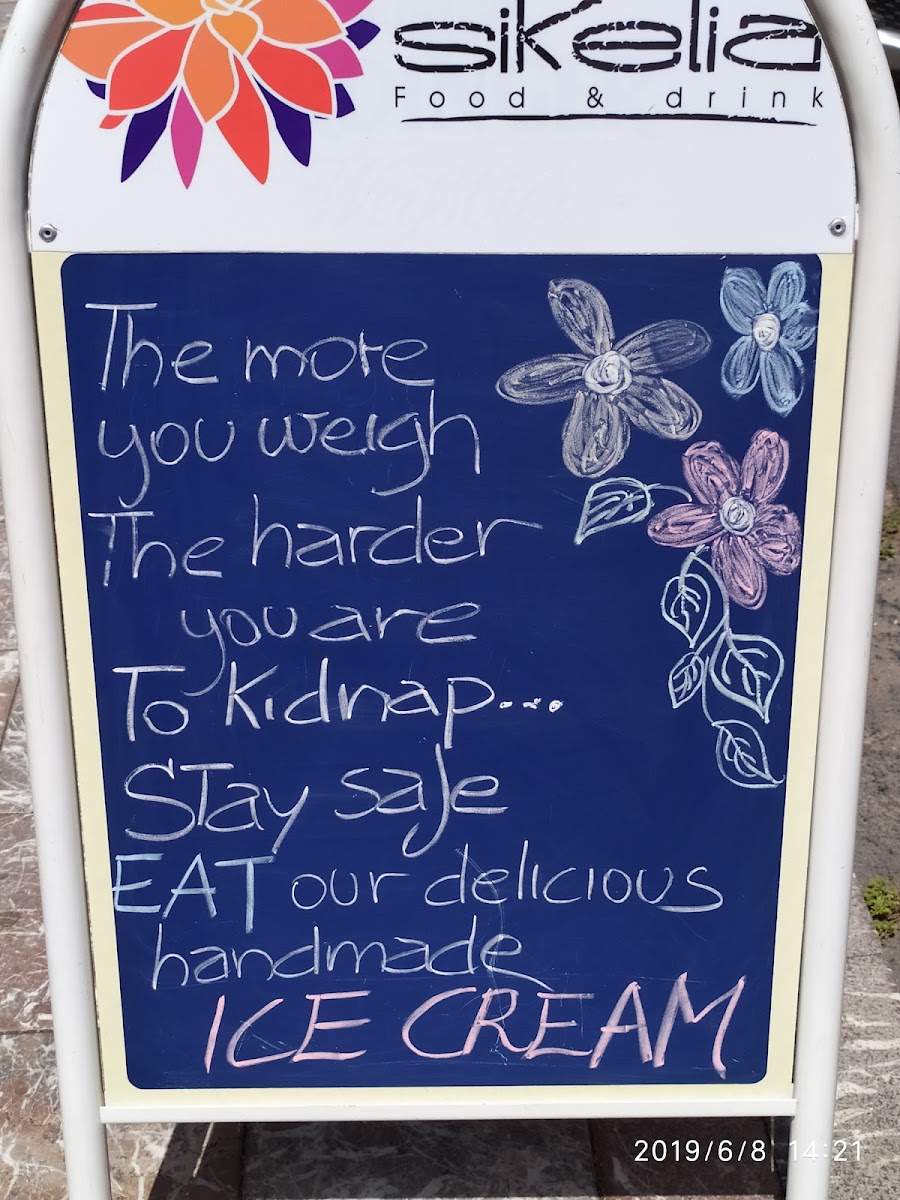 sikelia
Food & drink
The more
you weigh
The harder
you are
To Kidnap...
Stay safe
EAT our delicious
handmade
ICE CREAM
2019/6/8 14:21